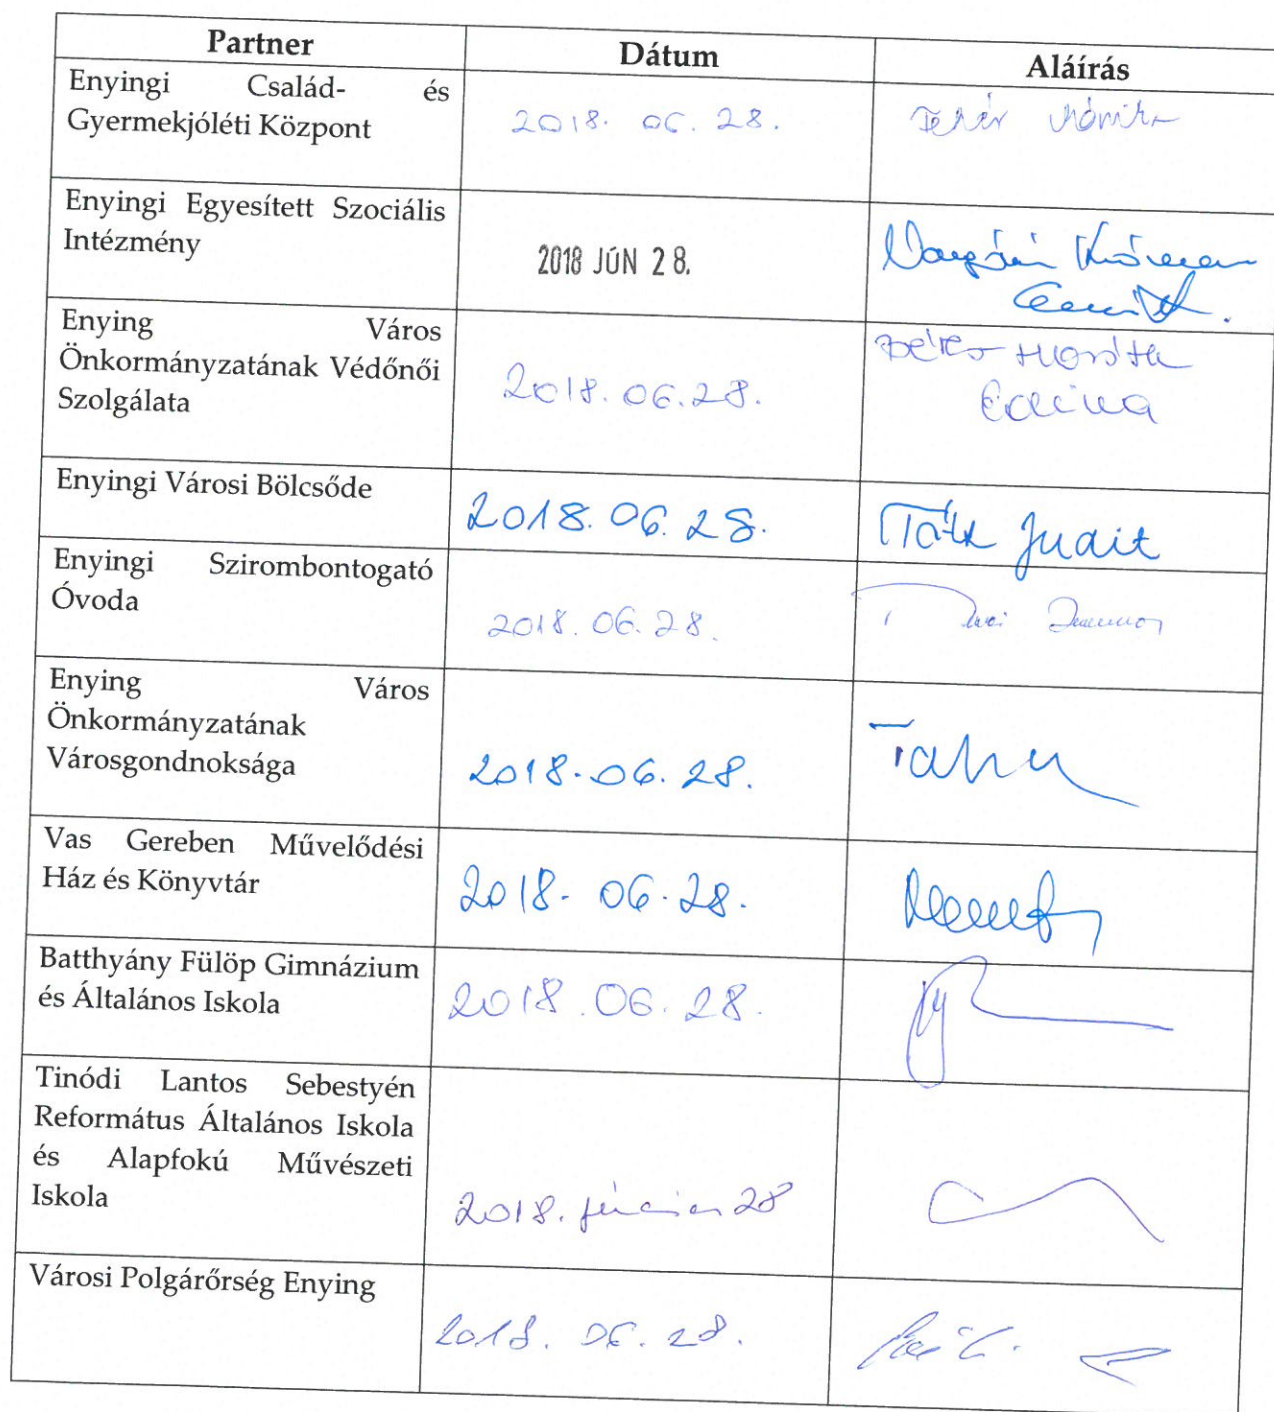 Partner Dátum Aláírás
Enyingi Család- és
Gyermekjóléti Központ
2018. 06. 28.
Fehér Mónika
Enyingi Egyesített Szociális
Intézmény
2018 JÚN 28.
Enying Város
Önkormányzatának Védőnői
Szolgálata
2018. 06. 28.
Horváth
Edina
Enyingi Városi Bölcsőde
2018. 06. 28.
Judit
Enyingi Szirombontogató
Óvoda
2018. 06. 28.
Enying Város
Önkormányzatának
Városgondnoksága
2018. 06. 28.
Vas Gereben Művelődési
Ház és Könyvtár
2018. 06. 28.
Batthyány Fülöp Gimnázium
és Általános Iskola
2018. 06. 28.
Tinódi Lantos Sebestyén
Református Általános Iskola
és Alapfokú Művészeti
Iskola
2018. június 28
Városi Polgárőrség Enying
2018. 06. 28.